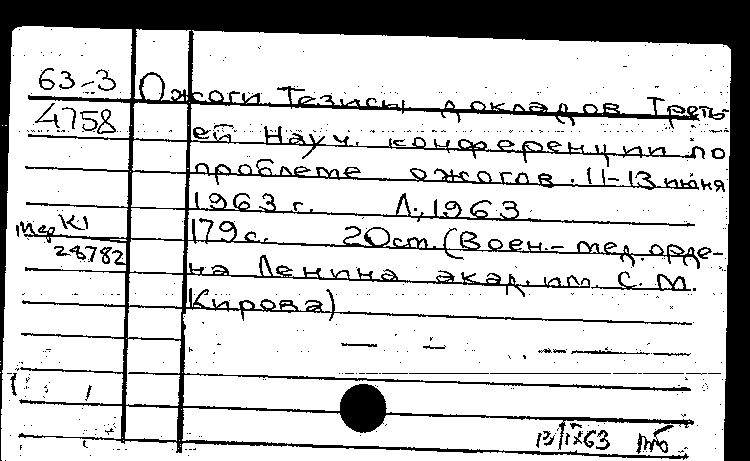 63-3 Ожоги. Тезисы докладов Треть-
4758 ей Науч. конференции по
проблеме ожогов. 11-13 июня
1963 г. Л., 1963.
Мед К1 179 с. 20 см. (Воен.-мед. орде-
28782 на Ленина акад. им. С. М.
Кирова)
13/IX63